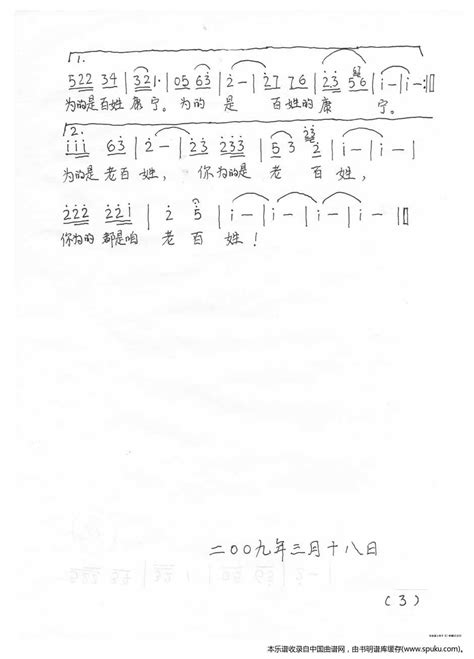 1.
522 34 | 321· | 05 63 | 2 - | 27 76 | 23 56 | i - | i - :||
为的是百姓康宁。为的 是 百姓的康 宁。
2.
iii 63 | 2 - | 23 233 | 53 2 | i - | i - |
为的是老百 姓， 你为的是 老 百 姓，
222 22i | 2 5 | i - | i - | i - | i - ||
你为的 都是咱 老 百 姓！
二00九年三月十八日
(3)
本乐谱收录自中国曲谱网，由书明谱库缓存(www.spuku.com)